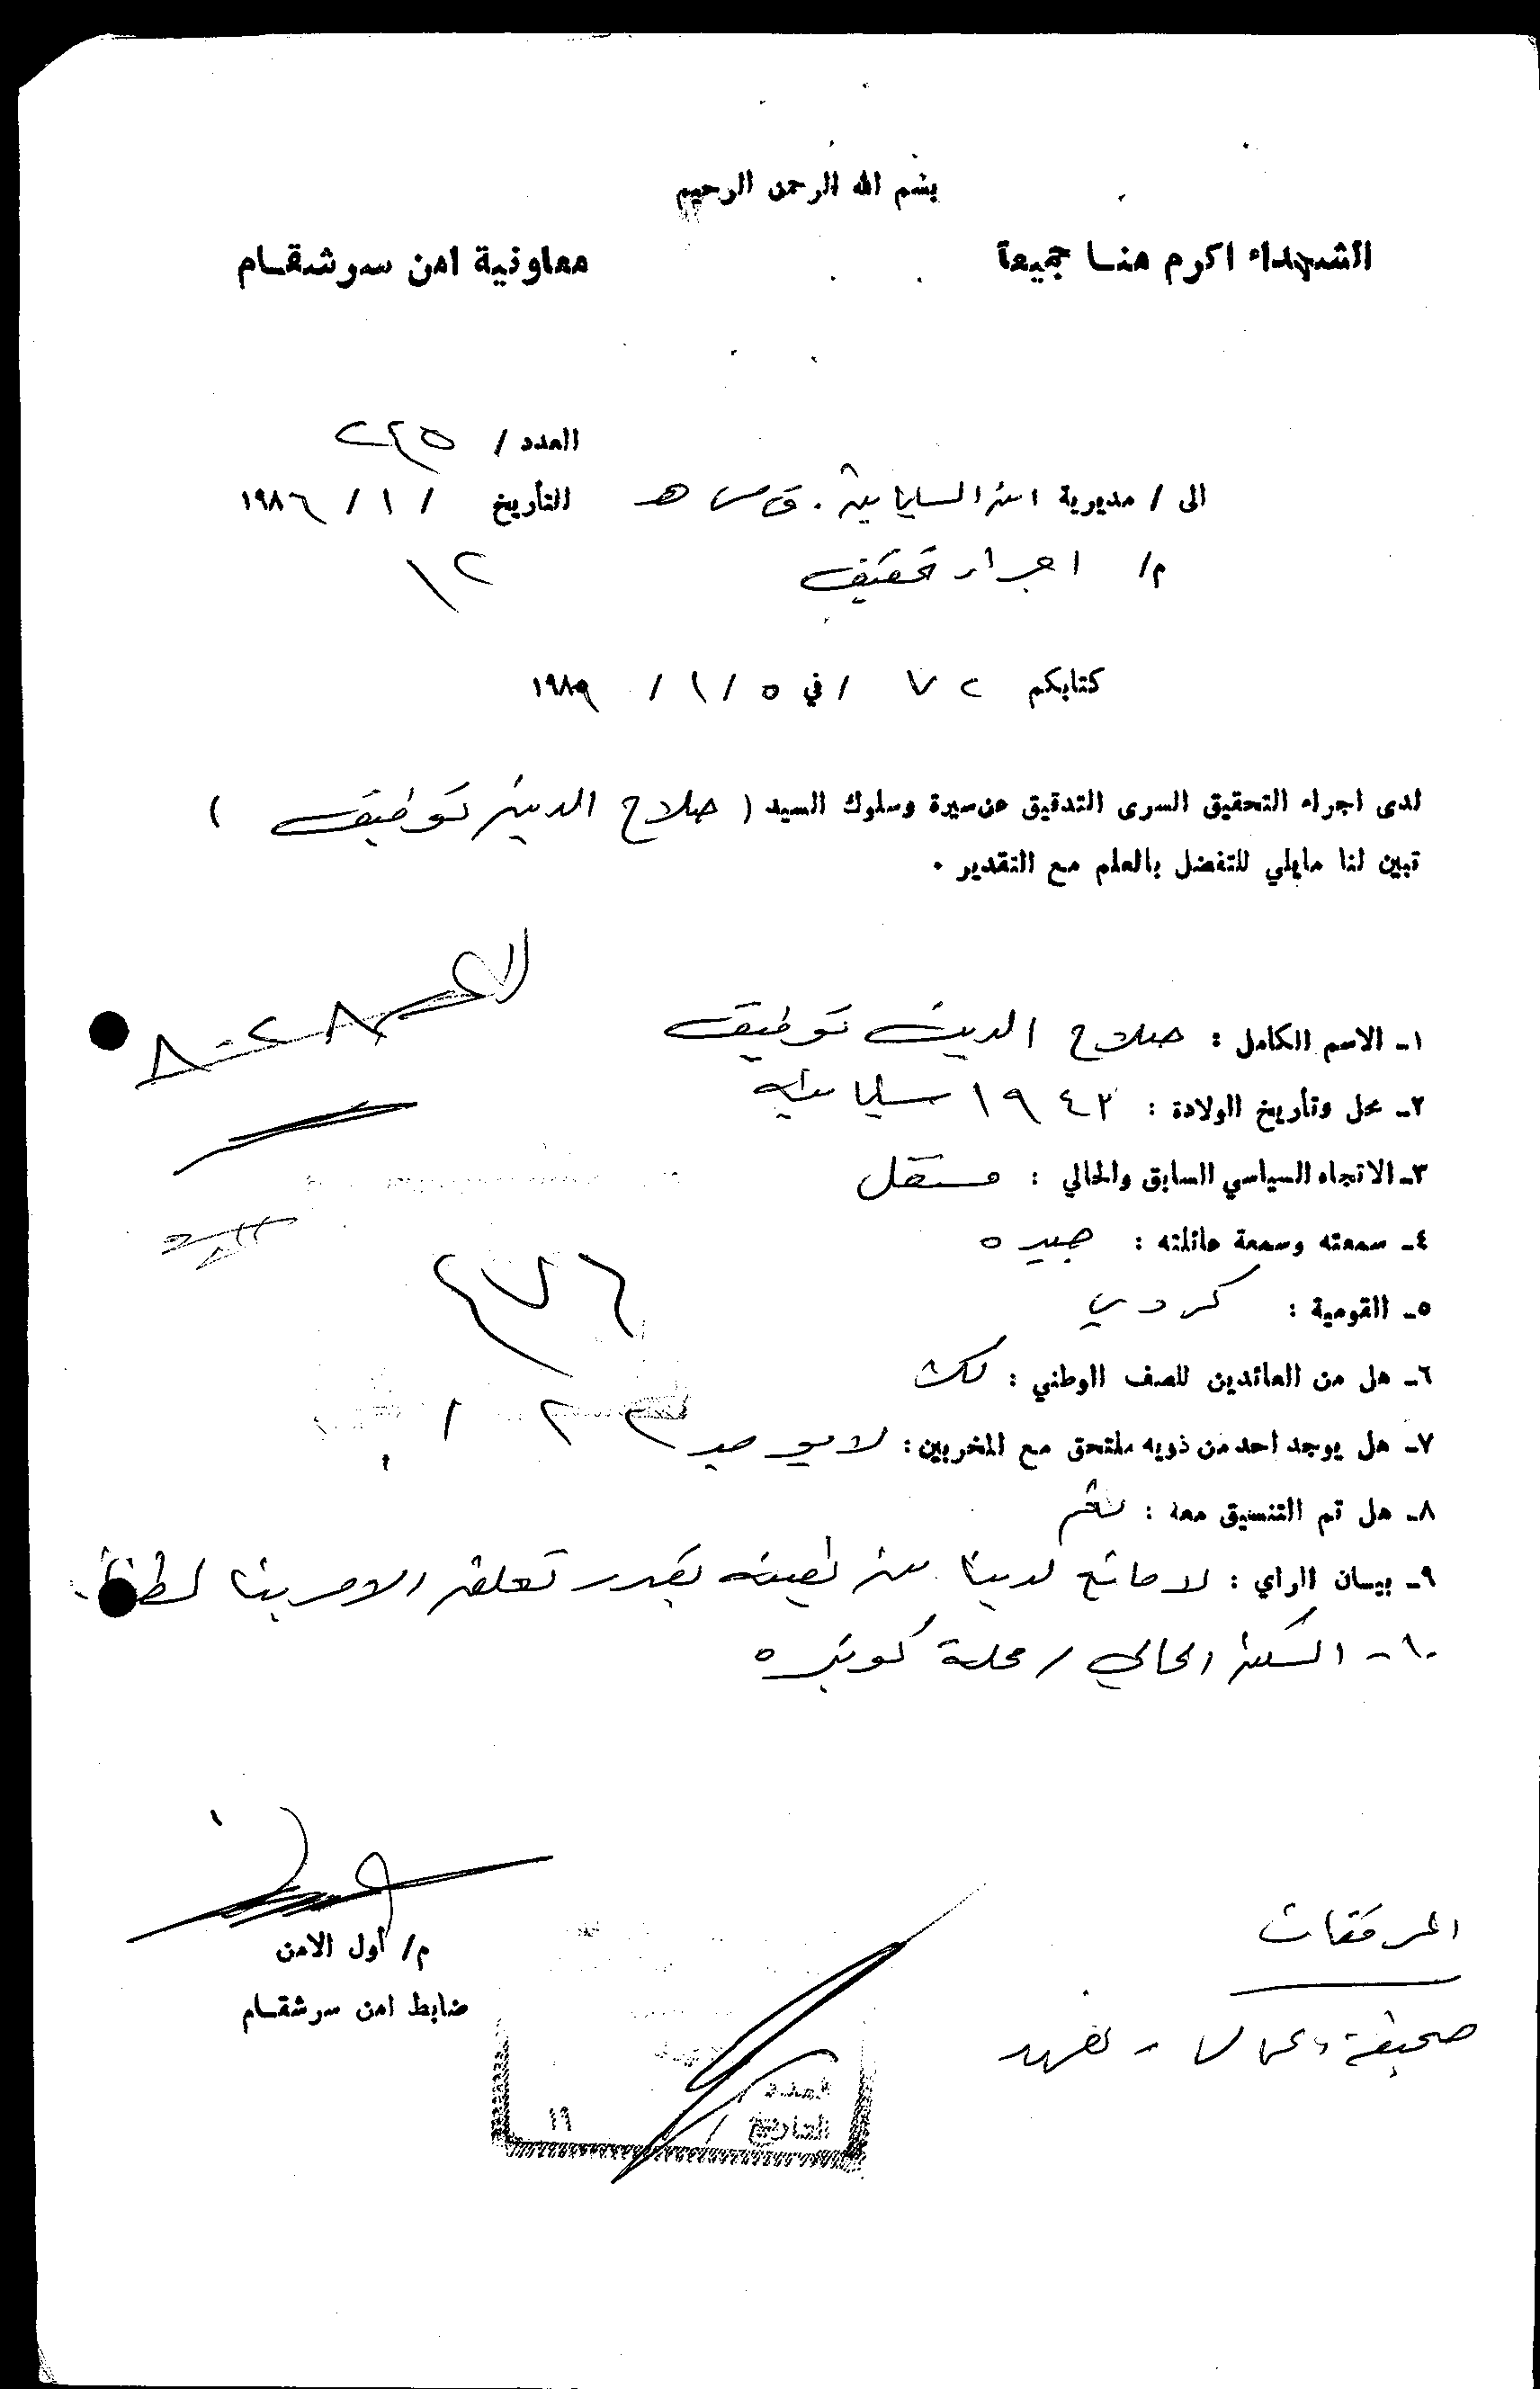 بسم الله الرحمن الرحيم
الشهداء اكرم منا جميعا
معاونية امن سرشقام
العدد / ٢٢٥
الى / مديرية امن السليمانية . ق س هـ
التأريخ / ١ / ١٩٨٦
١٢
م/ اجراء تحقيق
كتابكم ٧٢ / في ٥ / ١ / ١٩٨٩
لدى اجراء التحقيق السرى التدقيق عن سيرة وسلوك السيد ( صلاح الدين توفيق )
تبين لنا مايلي للتفضل بالعلم مع التقدير .
١- الاسم الكامل : صلاح الدين توفيق
٢- محل وتأريخ الولادة : ١٩٤٣ سليمانيه
٣- الاتجاه السياسي السابق والحالي : مستقل
٤- سمعته وسمعة عائلته : جيده
٥- القومية : كردي
٢٧٦
٦- هل من العائدين للصف الوطني : كلا
٧- هل يوجد احد من ذويه ملتحق مع المخربين : لا يوجد
٨- هل تم التنسيق معه : نعم
٩- بيسان الراي : لا مانع لدينا من تعيينه بقدر تعلق الامر بنا لطفا .
١٠- السكن الحالي / محلة كويزه
م/ أول الامن
ضابط امن سرشقام
المرفقات
صحيفة اعمال - تعهد
العدد
التاريخ / / ١٩